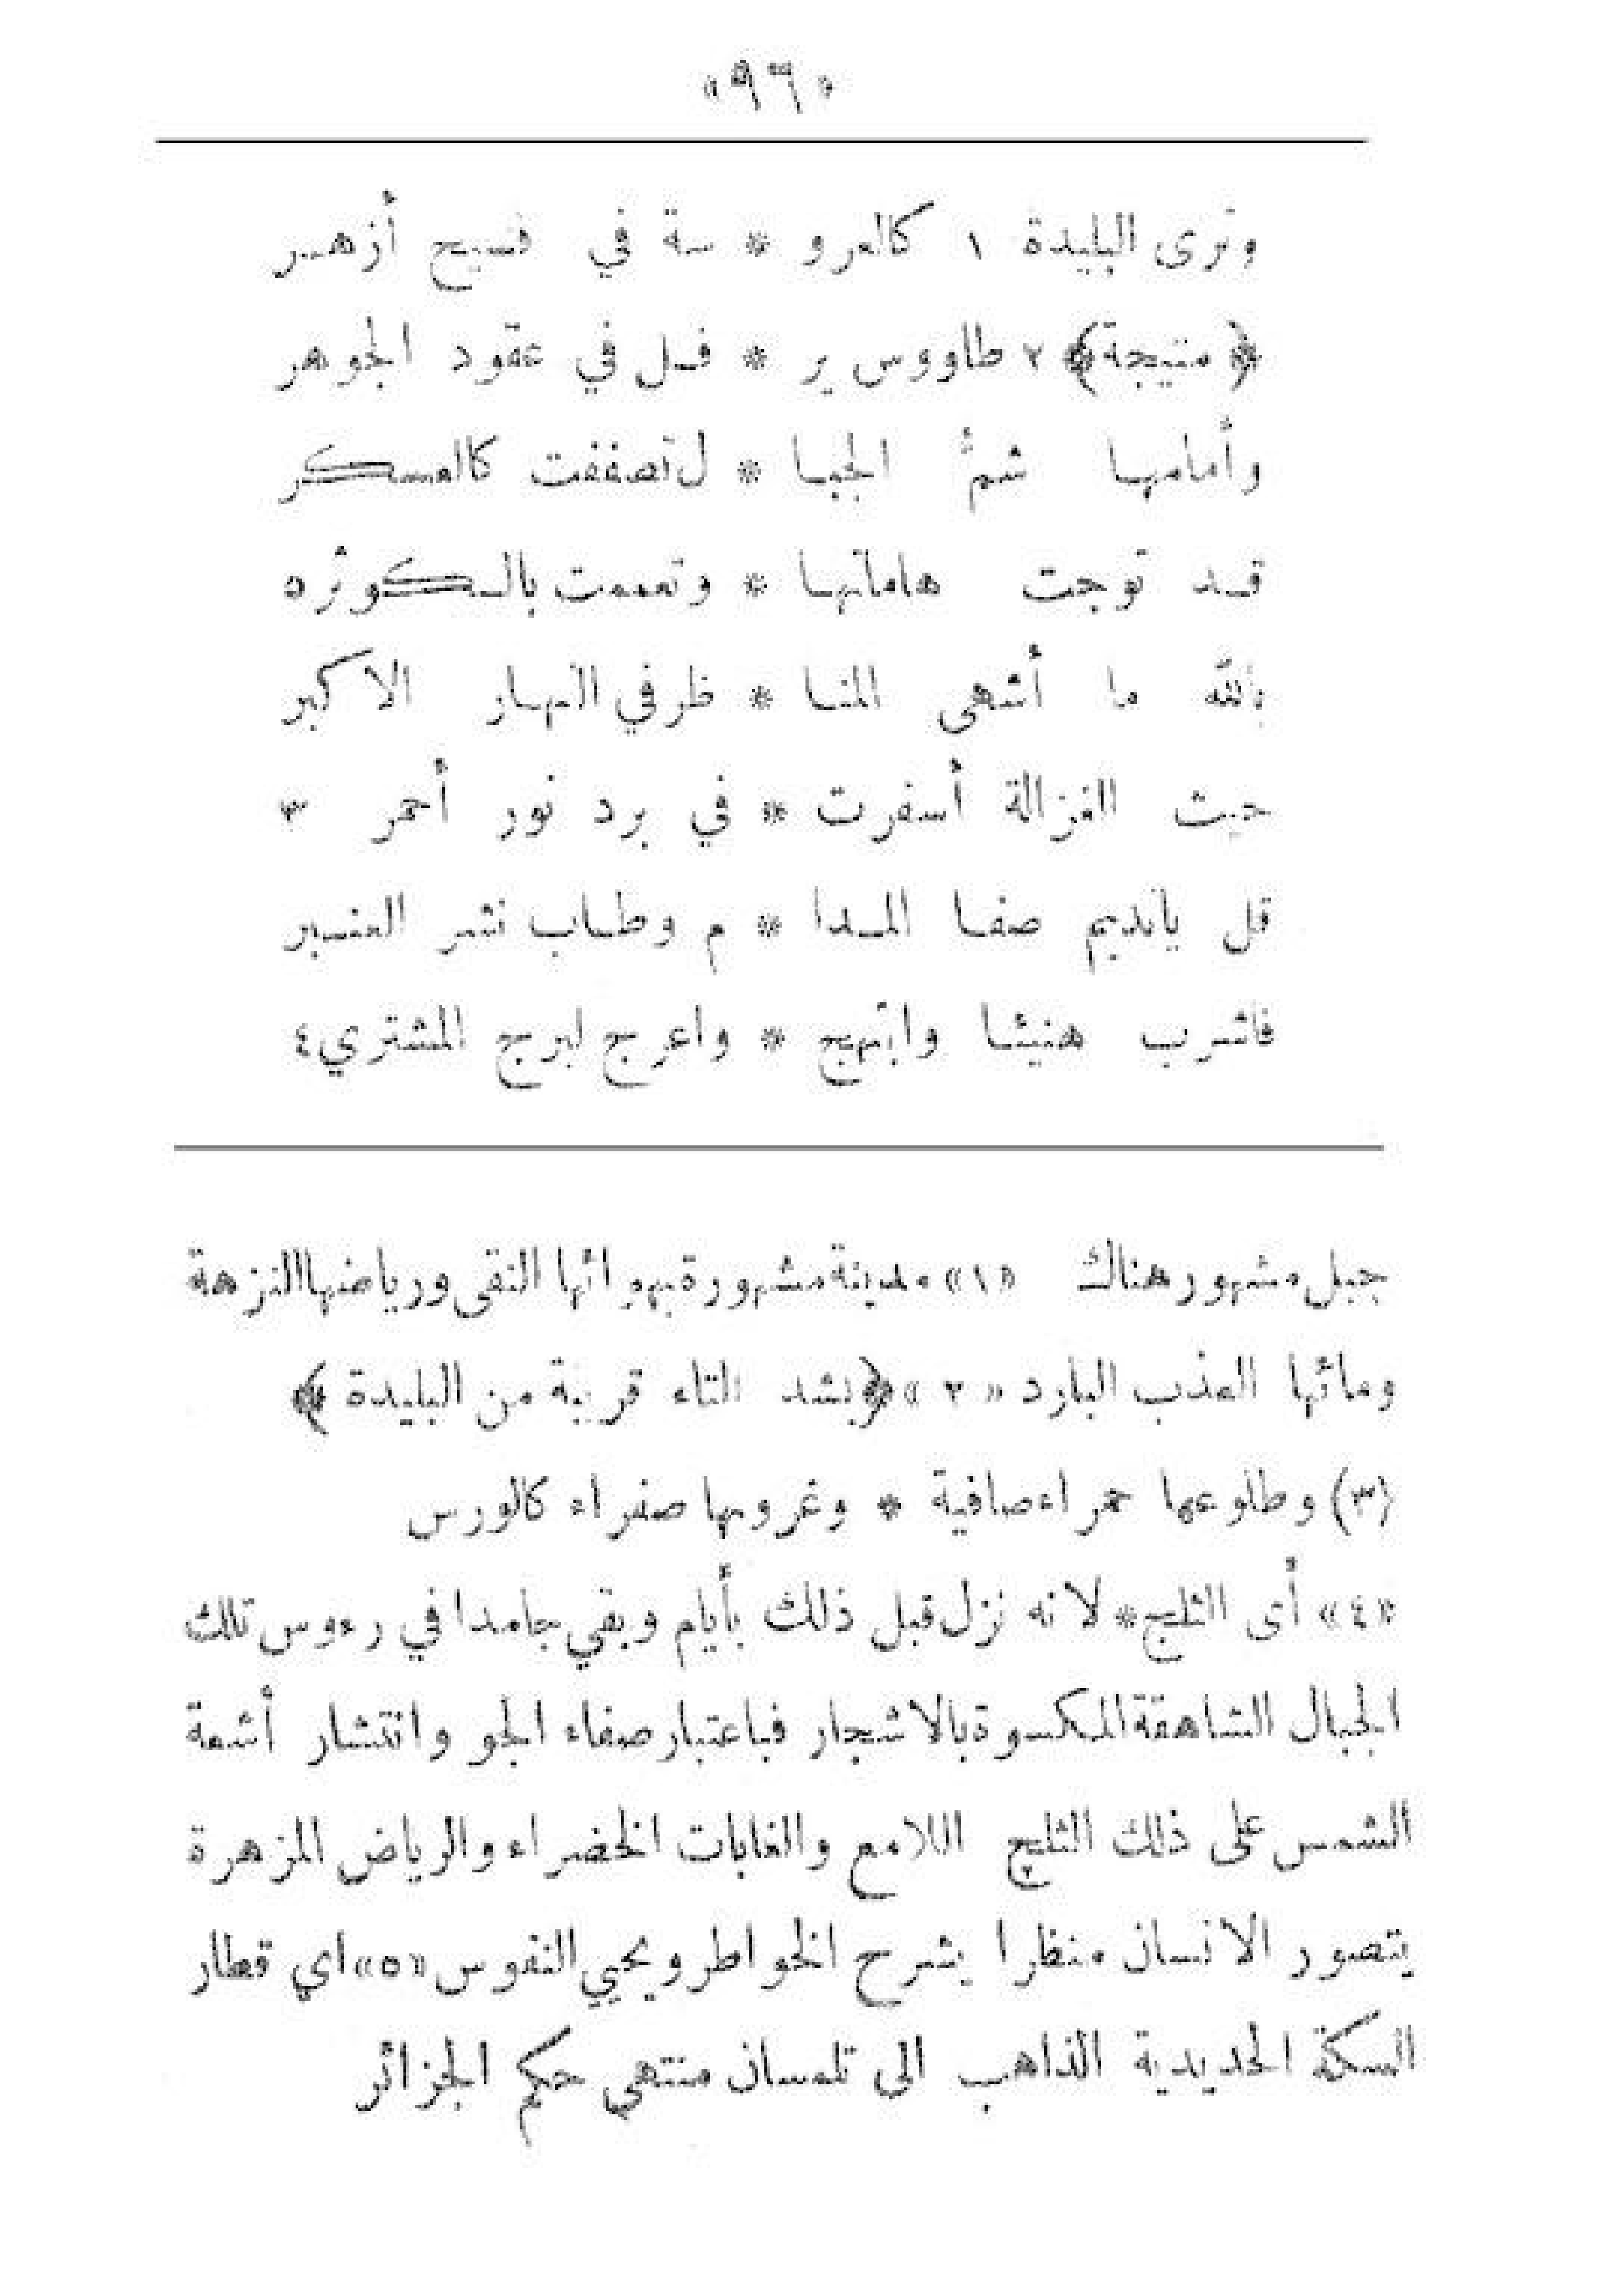 «٩٦»
وترى البليدة ١ كالعرو * سة في فسيح أزهر
﴿متيجة﴾ ٢ طاووس ير * فل في عقود الجوهر
وأمامها شمُّ الجبا * ل تصففت كالعسكر
قد توجت هاماتها * وتعممت بالكوثر ٥
بالله ما أشهى المنا * ظر في النهار الاكبر
حيث الغزالة أسفرت * في برد نور أحمر ٣
قل يانديم صفا المدا * م وطاب نشر العنبر
فاشرب هنيئا وابتهج * واعرج لبرج المشتري ٤
جبل مشهور هناك «١» مدينة مشهورة بهوائها النقى ورياضها النزهة
ومائها العذب البارد «٢» ﴿بشد التاء قريبة من البليدة﴾
(٣) وطلوعها حمراء صافية * وغروبها صفراء كالورس
«٤» أى الثلج * لانه نزل قبل ذلك بأيام وبقي جامدا في رءوس تلك
الجبال الشاهقة المكسوة بالاشجار فباعتبار صفاء الجو وانتشار أشعة
الشمس على ذلك الثلج اللامع والغابات الخضراء والرياض المزهرة
يتصور الانسان منظرا يشرح الخواطر ويحيي النفوس «٥» اي قطار
السكة الحديدية الذاهب الى تلمسان منتهى حكم الجزائر